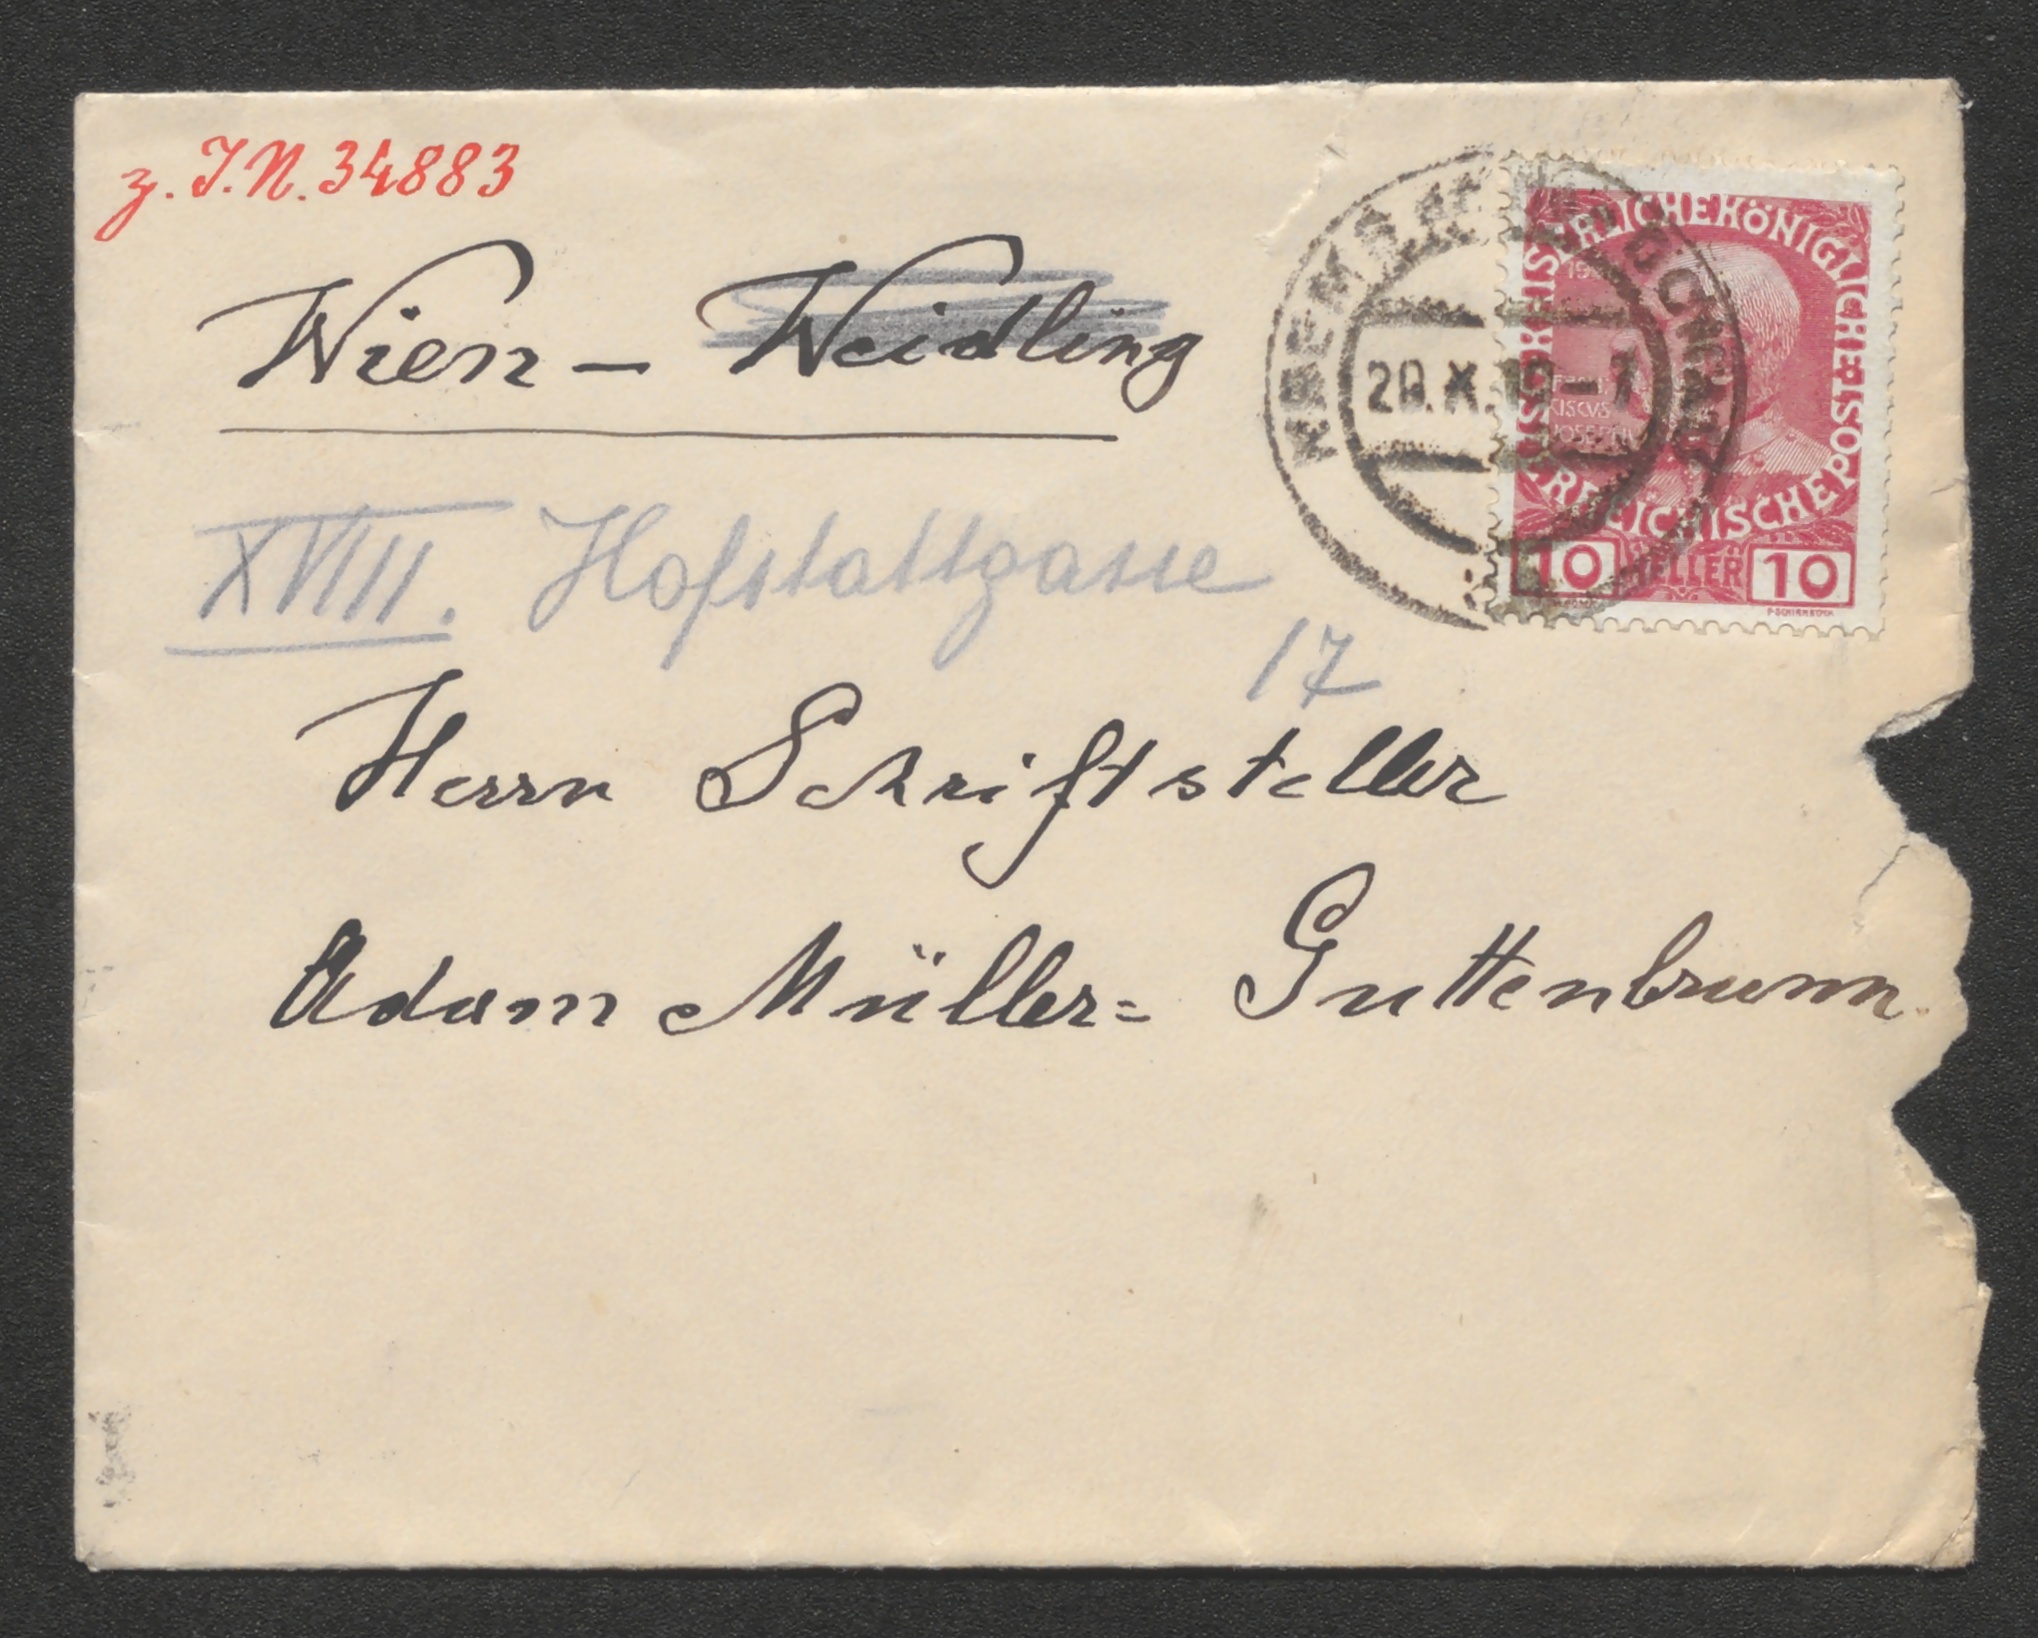 z. I.N. 34883
Wien – Weidling
XVIII. Hofstattgasse
17
Herrn Schriftsteller
Adam Müller= Guttenbrunn.
KREMS
20.X.10–1
KAISERLICHE KÖNIGLICHE
ÖSTERREICHISCHE POST
10 HELLER 10